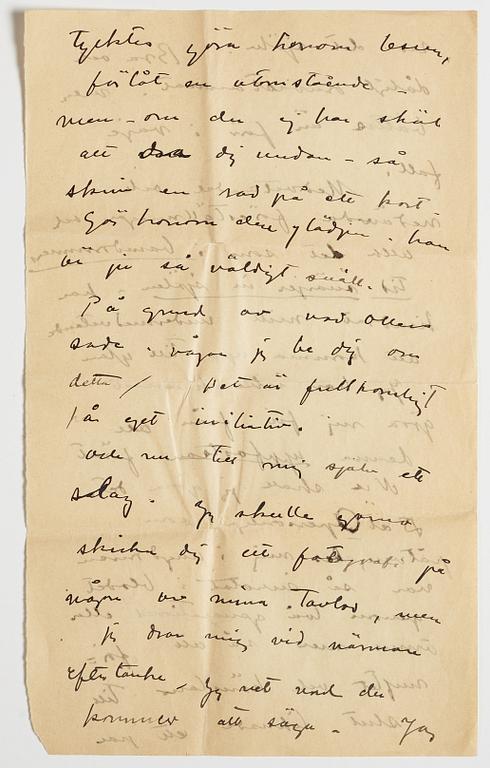 tycktes göra honom ledsen,
förlåt en utomstående –
men – om du ej har skäl
att dra dig undan – så
skrif en rad på ett kort
Gör honom den glädjen. han
är ju så väldigt snäll.
På grund av vad Ollers
sade. vågar jg be dig om
detta / Det är fullkomligt
på eget initiativ.
och nu till mig själv ett
slag. Jg skulle gärna
skicka dig ett fotografi på
några av mina Tavlor, men
jg drar mig vid närmare
eftertanke – Jg vet vad du
kommer att säga – Jag